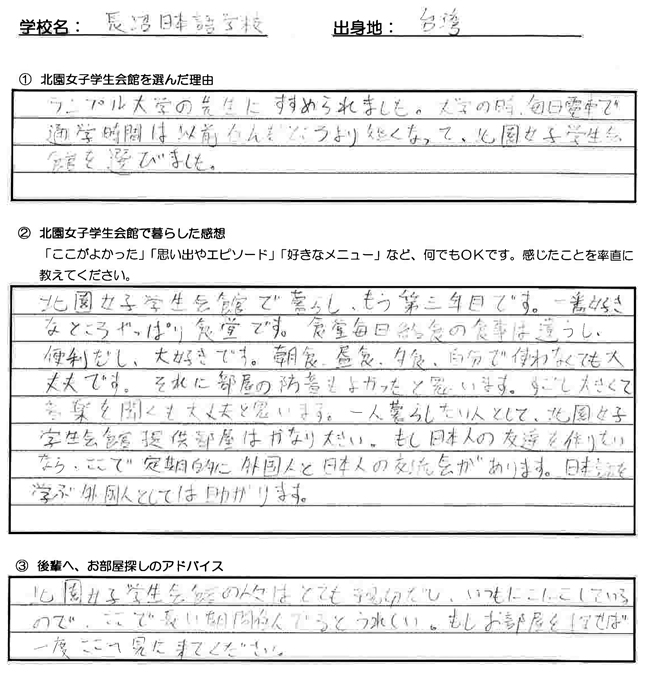 学校名： 長沼日本語学校 出身地： 台湾
① 北園女子学生会館を選んだ理由
ランゲル大学の先生にすすめられました。大学の時、毎日電車で
通学時間は以前住んだところより短くなって、北園女子学生会
館を選びました。
② 北園女子学生会館で暮らした感想
「ここがよかった」「思い出やエピソード」「好きなメニュー」など、何でもOKです。感じたことを率直に
教えてください。
北園女子学生会館で暮らし、もう第三年目です。一番好き
なところやっぱり食堂です。食堂毎日給食の食事は違うし、
便利だし、大好きです。朝食、昼食、夕食、自分で使わなくても大
丈夫です。それに部屋の防音もよかったと思います。すごし大きくて
音楽を聞くも大丈夫と思います。一人暮らしたい人として、北園女子
学生会館提供部屋はかなり大きい。もし日本人の友達を作りたい
なら、ここで定期的に外国人と日本人の交流会があります。日本語を
学ぶ外国人としては助かります。
③ 後輩へ、お部屋探しのアドバイス
北園女子学生会館の人々はとても親切だし、いつもにこにこしている
ので、ここで長い期間住んでるとうれしい。もしお部屋を
一度ここへ見に来てください。